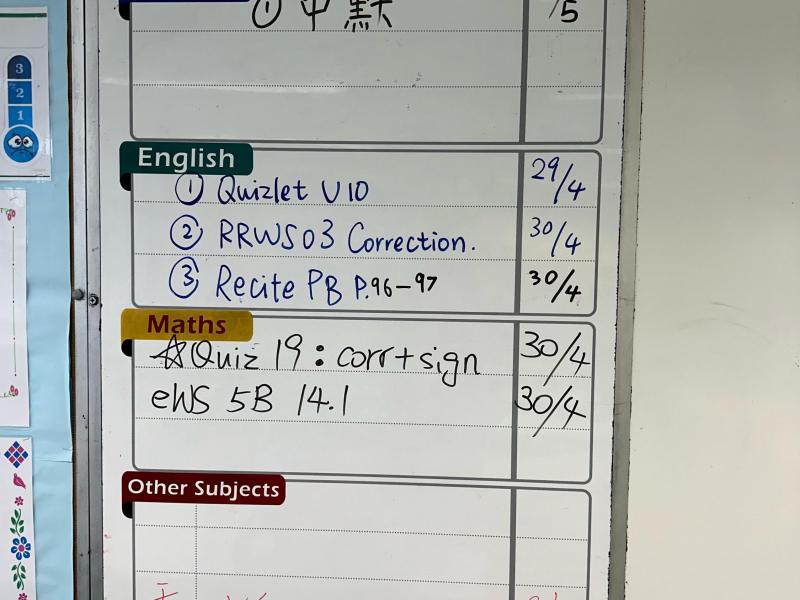 ① 中默 /5
3
2
1
English
① Quizlet U10 29/4
② RRWS03 Correction. 30/4
③ Recite PB P.96-97 30/4
Maths
☆Quiz 19: corr+sign 30/4
eWS 5B 14.1 30/4
Other Subjects